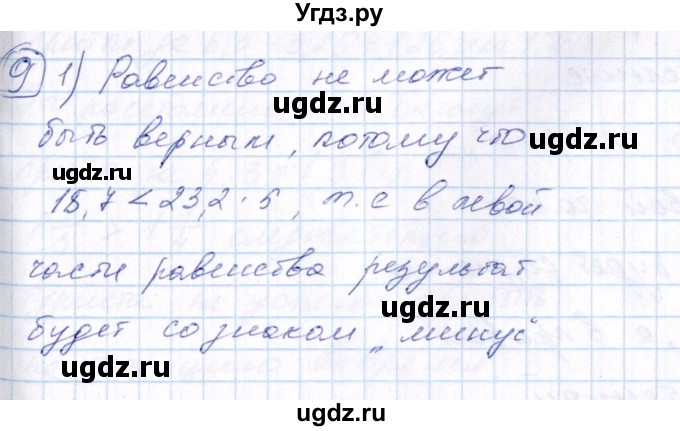 Угdз.ру
9 1) Равенство не может
ugdz.ru ugdz.ru
быть верным, потому что
18,7 < 23,2 · 5, т.е в левой
ugdz.ru
части равенства результат
ugdz.ru ugdz.ru
будет со знаком „минус“
ugdz.ru